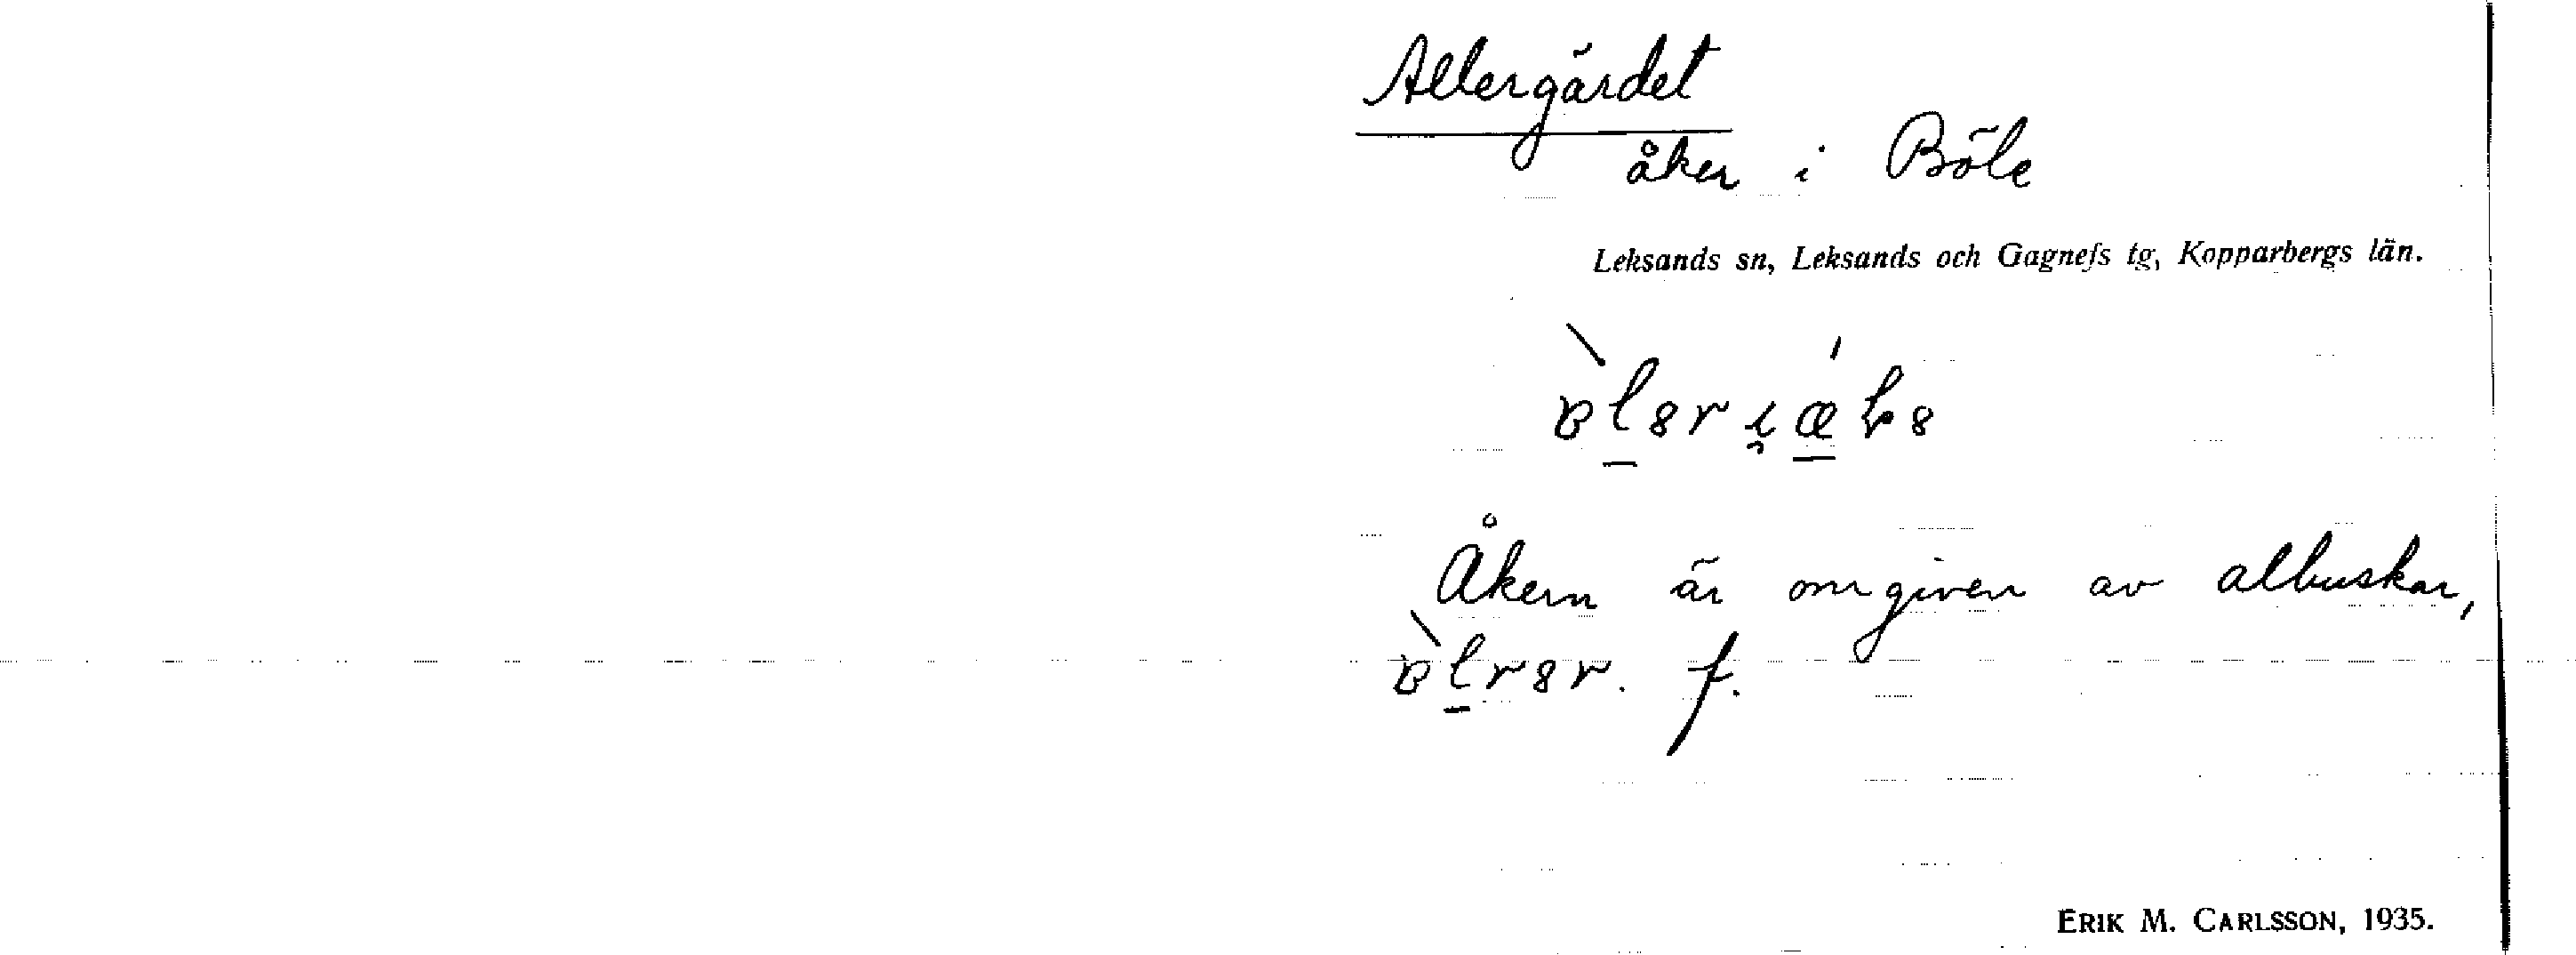 Allergärdet
åker i Böle
Leksands sn, Leksands och Gagnefs tg, Kopparbergs län.
Åkern är omgiven av albuskar,
f.
ERIK M. CARLSSON, 1935.